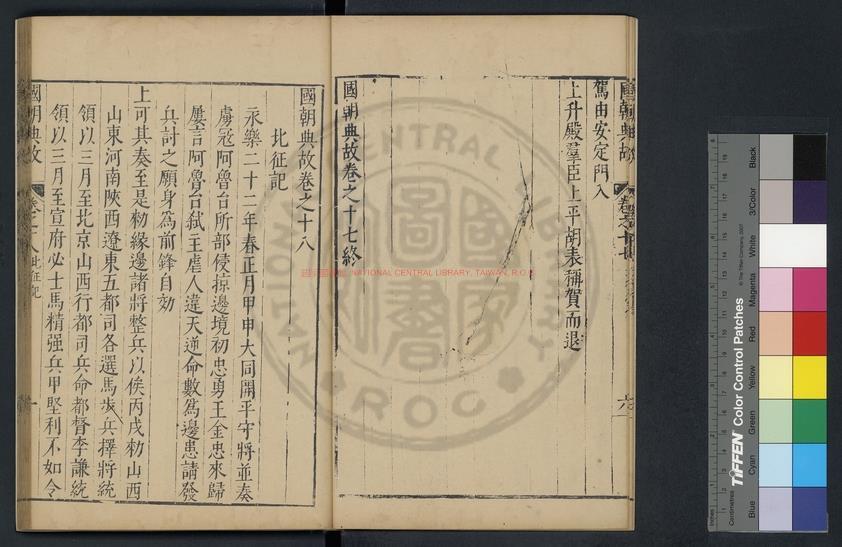 國朝典故
卷之十七
六
駕由安定門入
上升殿羣臣上平胡表稱賀而退
國朝典故卷之十七終
國朝典故卷之十八
北征記
永樂二十二年春正月甲申大同開平守將並奏
虜冦阿魯台所部侵掠邊境初忠勇王金忠來歸
屢言阿魯台弑王虐人違天逆命數爲邊患請發
兵討之願身爲前鋒自効
上可其奏至是勑緣邊諸將整兵以俟丙戌勑山西
山東河南陝西遼東五都司各選馬步兵擇將統
領以三月至北京山西行都司兵命都督李謙統
領以三月至宣府必士馬精强兵甲堅利不如令
國朝典故
卷十八北征記
一
國家圖書館 NATIONAL CENTRAL LIBRARY, TAIWAN, R.O.C
NATIONAL CENTRAL LIBRARY
ROC
國家圖書
TIFFEN Color Control Patches
© The Tiffen Company, 2007
Inches
Centimetres
Blue
Cyan
Green
Yellow
Red
Magenta
White
3/Color
Black